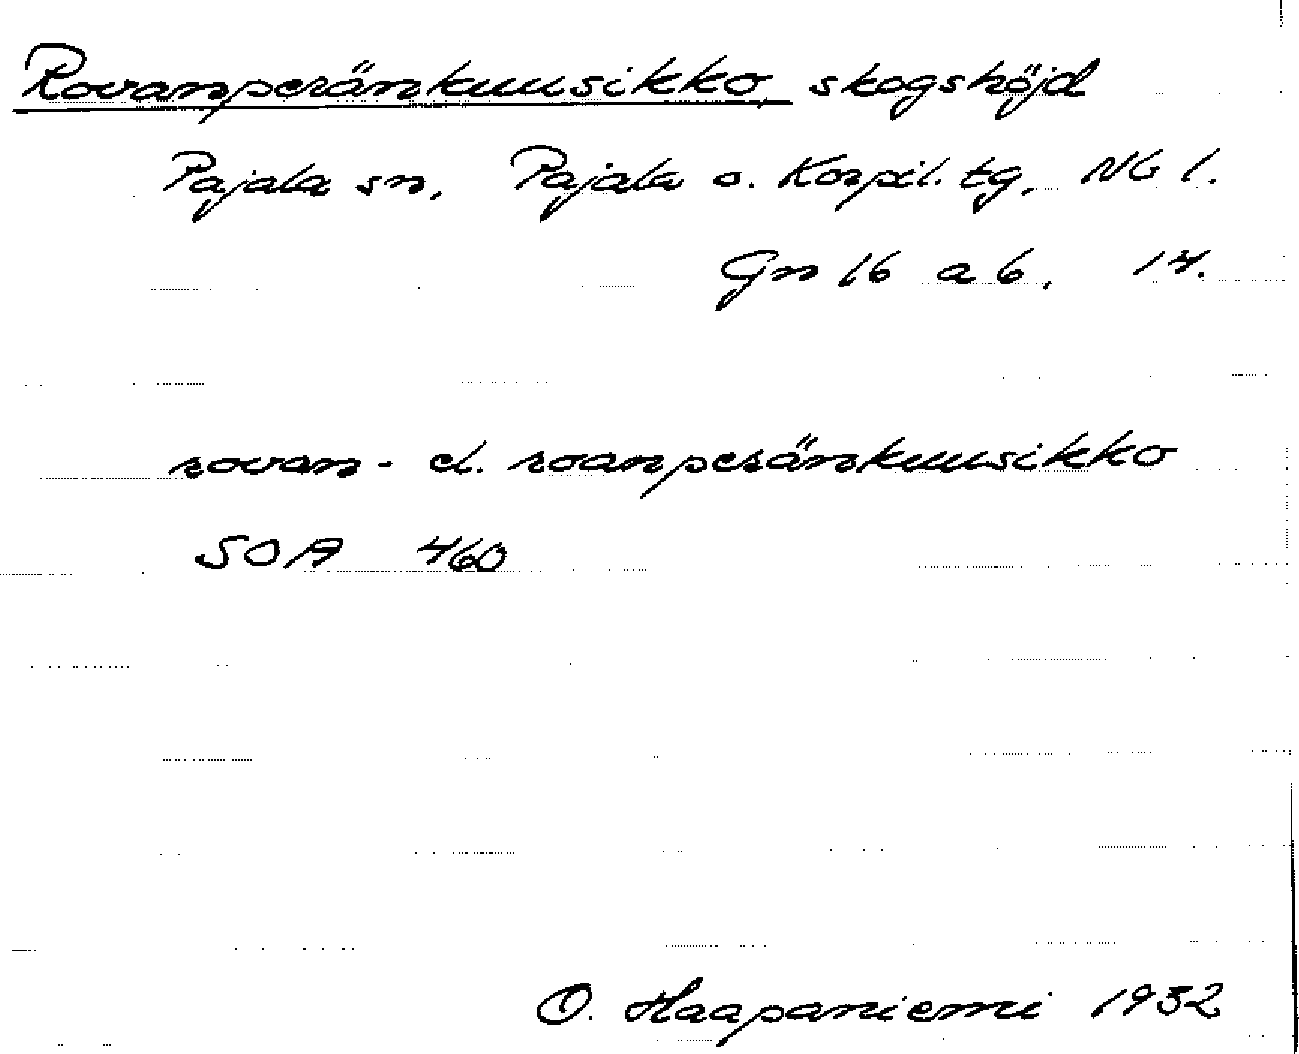 Rovanperänkuusikko, skogshöjd
Pajala sn, Pajala o. Korpil. tg, Nb l.
Gn 16 a 6, 14.
rovan- el. roanperänkuusikko
SOA 460
O. Haapaniemi 1932